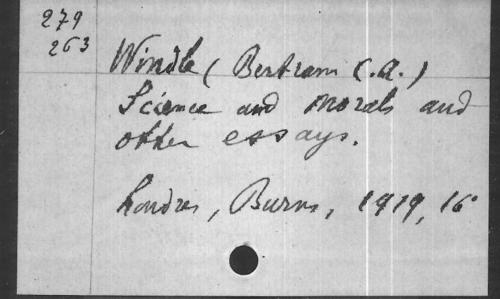 279
263
Windle (Bertram C.A.)
Science and morals and
other essays.
Londres, Burns, 1919, 16°